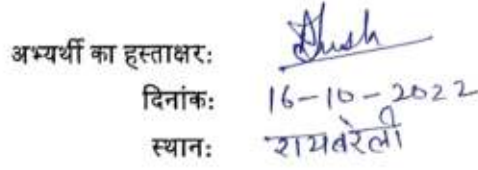 अभ्यर्थी का हस्ताक्षर:
दिनांक: 16-10-2022
स्थान: रायबरेली